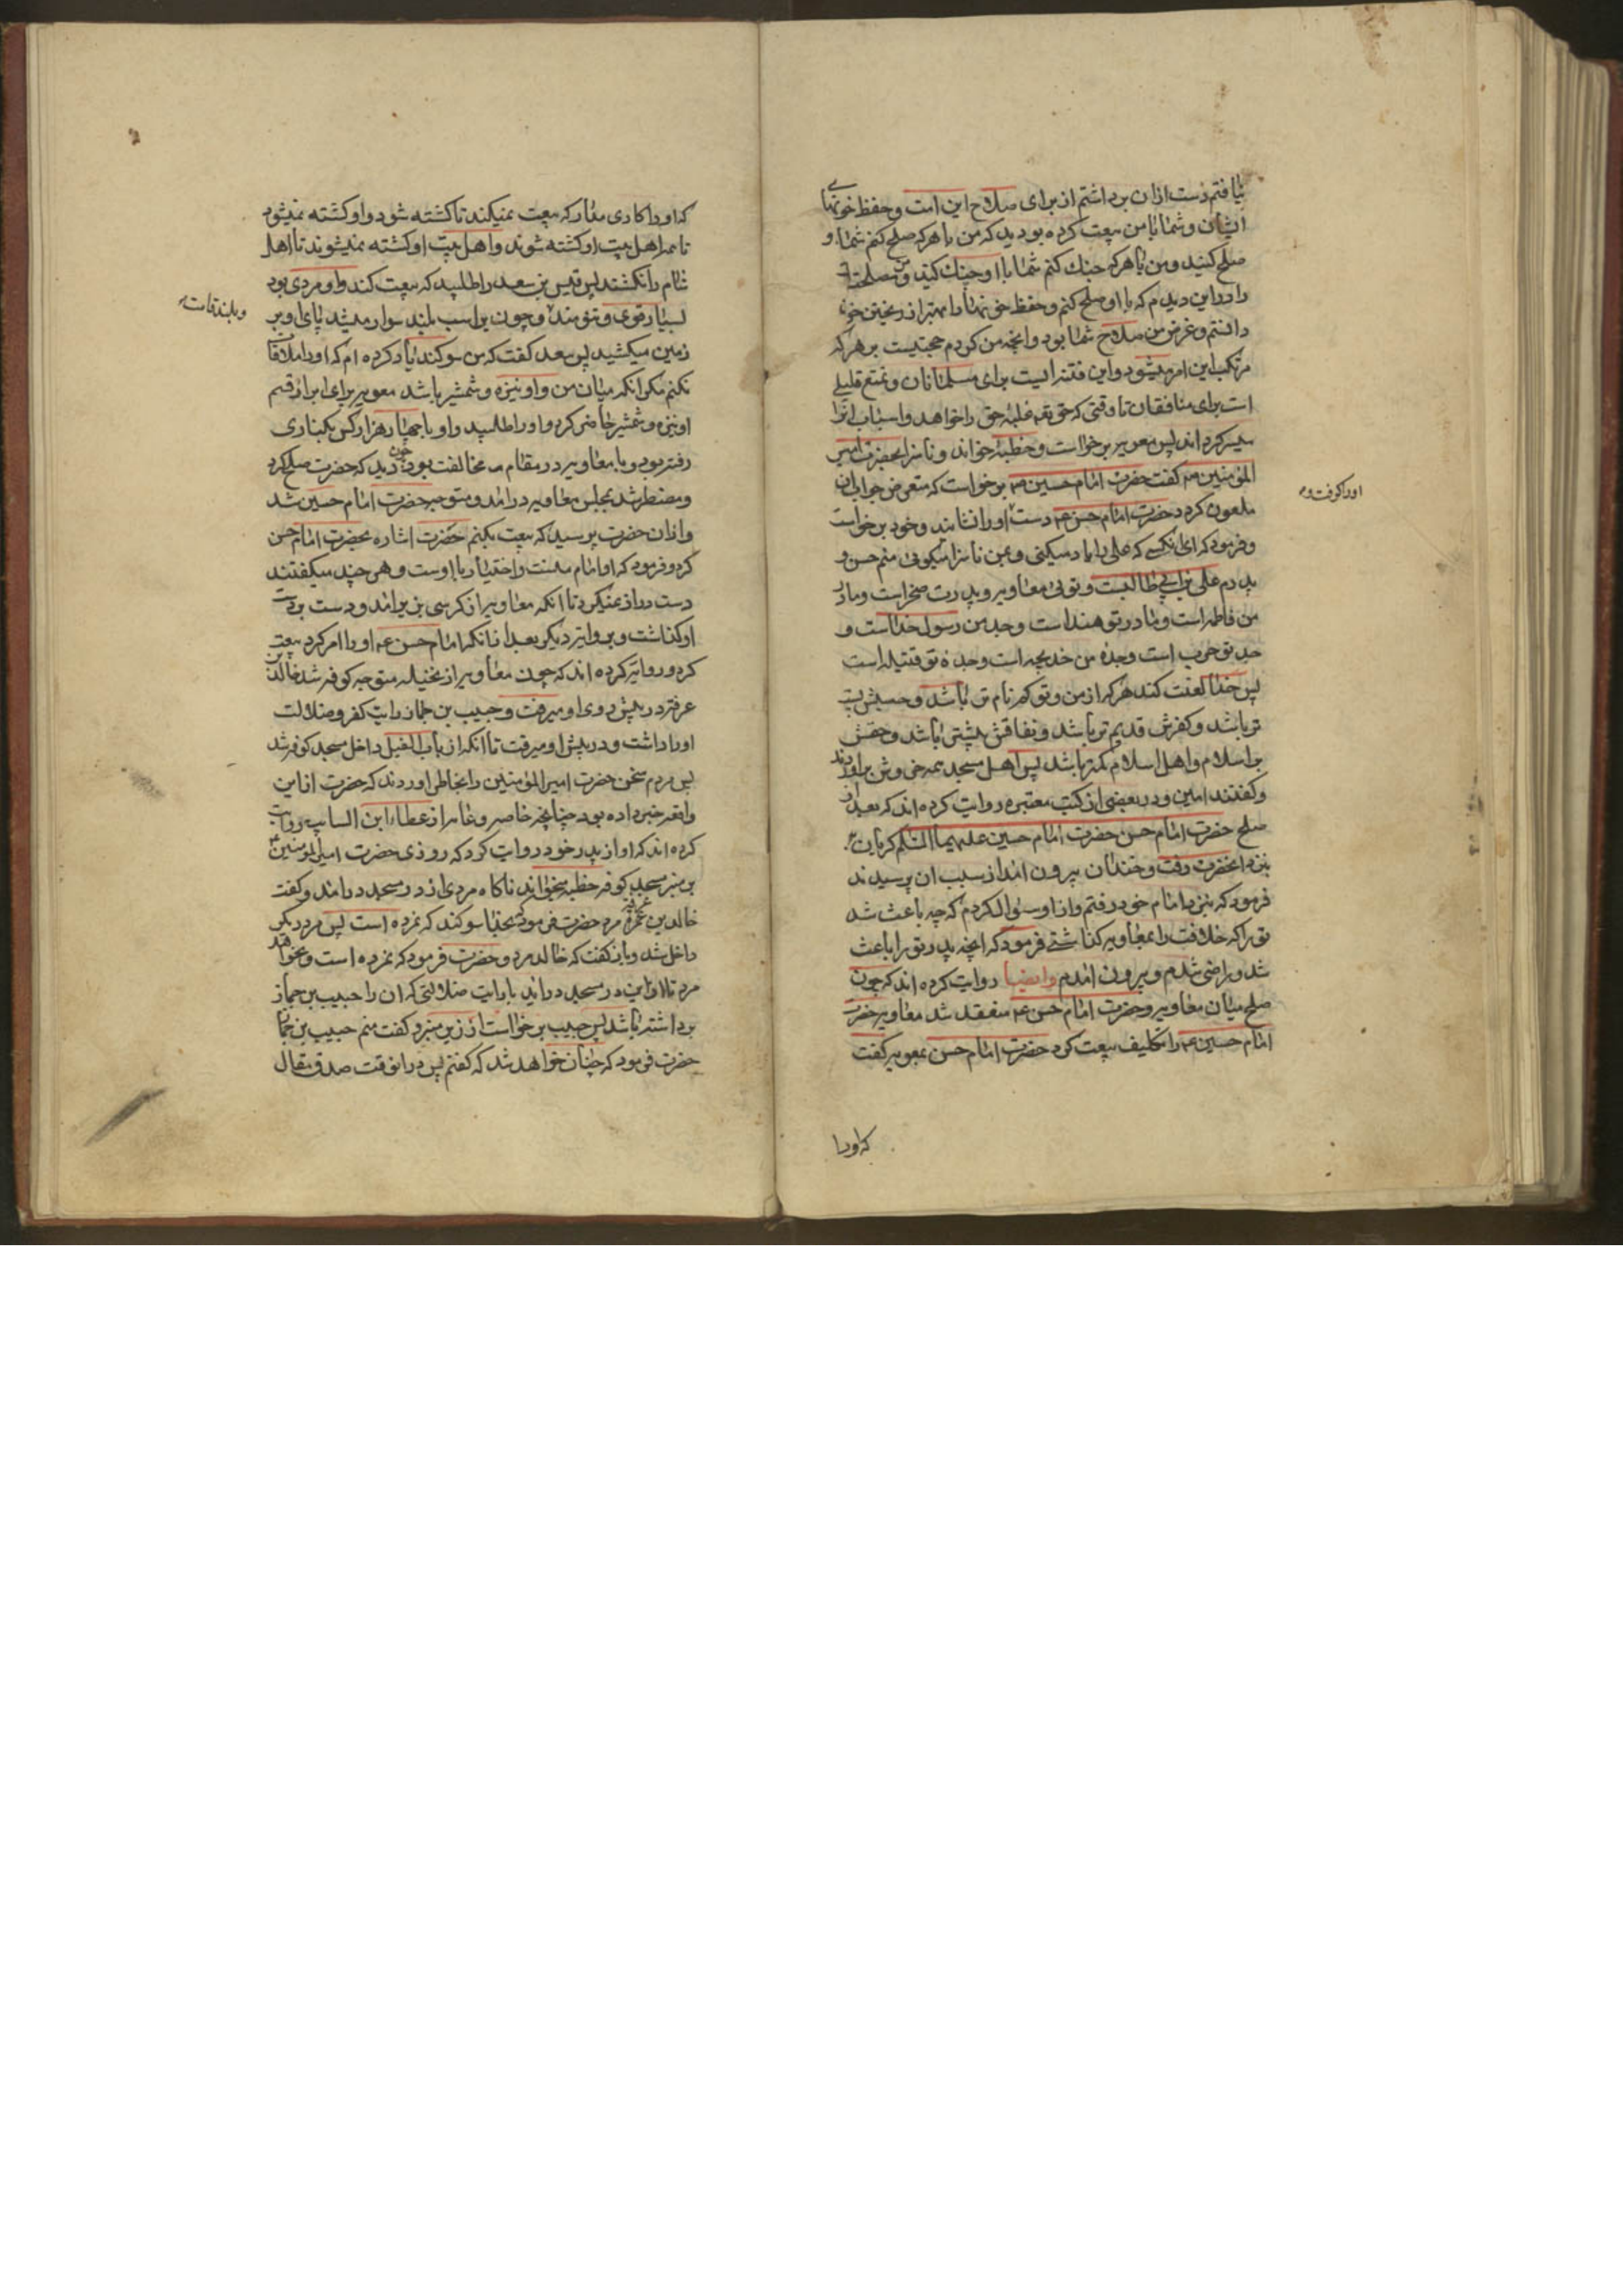 نیافتم دست ازان برداشتم از برای صلاح این امت و حفظ خونهای
ایشان و شما با من بیعت کرده بودید که من با هر که صلح کنم شما با او
صلح کنید و من با هر که جنک کنم شما با او جنک کنید و من مصلحت
را در این دیدم که با او صلح کنم و حفظ خونها را بهتر از ریختن خون
دانستم و غرض من صلاح شما بود و انچه من کردم حجتیست بر هر که
مرتکب این امر میشود و این فتنه ایست برای مسلمانان و تمتع قلیلی
است برای منافقان تا وقتی که حق تعه غلبهٔ حق را خواهد و اسباب انرا
میسر کرداند پس معویه برخواست و خطبهٔ خواند و ناسزا بحضرت امیر
المؤمنین عم کفت حضرت امام حسین عم برخواست که متعرض جواب ان
ملعون کردد حضرت امام حسن عم دست او را نشانید و خود برخواست
اورا کرفت و
و فرمود که ای انکسی که علی را یاد میکنی و بمن ناسزا میکوئی منم حسن و
پدرم علی بن ابی طالبست و توئی معاویه و پدرت صخر است و مادر
من فاطمه است و مادر تو هند است و جد من رسول خداست و
جد تو حرب است و جدهٔ من خدیجه است و جدهٔ تو قتیله است
پس خدا لعنت کند هر که از من و تو کم نام تر باشد و حسبش پست
تر باشد و کفرش قدیم تر باشد و نفاقش بیشتر باشد و حقش
بر اسلام و اهل اسلام کمتر باشد پس اهل مسجد همه خروش براوردند
و کفتند امین و در بعضی از کتب معتبره روایت کرده اند که بعد از
صلح حضرت امام حسن حضرت امام حسین علیهما السلم کریان
بنزد انحضرت رفت و خندان بیرون امد از سبب ان پرسیدند
فرمود که بنزد امام خود رفتم و از او سؤال کردم که چه باعث شد
تو را که خلافت را بمعاویه کذاشتی فرمود که انچه پدر تو را باعث
شد و راضی شدم و بیرون امدم وایضا روایت کرده اند که چون
صلح میان معاویه و حضرت امام حسن عم منعقد شد معاویه حضرت
امام حسین عم را تکلیف بیعت کرد حضرت امام حسن بمعویه کفت
که اورا
که او را کاری مدار که بیعت نمیکند تا کشته شود و او کشته نمیشود
تا همه اهل بیت او کشته شوند و اهل بیت او کشته نمیشوند تا اهل
شام را نکشند پس قیس بن سعد را طلبید که بیعت کند و او مردی بود
بسیار قوی و تنومند و چون بر اسب بلند سوار میشد پای او بر
و بلند قامت
زمین میکشید پس سعد کفت که من سوکند یاد کرده ام که او را ملاقات
نکنم مکر انکه میان من و او نیزه و شمشیر باشد معویه برای ابرار قسم
او نیزه و شمشیر حاضر کرد و او را طلبید و او با چهار هزار کس بکناری
رفته بود و با معاویه در مقام مخالفت بود چون دید که حضرت صلح کرد
و مضطر شد بمجلس معاویه درامد و متوجه حضرت امام حسین شد
و ازان حضرت پرسید که بیعت بکنم حضرت اشاره بحضرت امام حسن
کرد و فرمود که او امام منست و اختیار با اوست و هر چند میکفتند
دست دراز نمیکرد تا انکه معاویه از کرسی بزیر امد و دست بر دست
او کذاشت و بروایت دیکر بعد از انکه امام حسن عم او را امر کرد بیعت
کرد و روایت کرده اند که چون معاویه از نخیله متوجه کوفه شد خالد بن
عرفته در پیش روی او میرفت و حبیب بن حماز رایت کفر و ضلالت
او را داشت و در پیش او میرفت تا انکه از باب الفیل داخل مسجد کوفه شد
پس مردم سخن حضرت امیر المؤمنین را بخاطر اوردند که حضرت از این
واقعه خبر داده بود چنانچه خاصه و عامه از عطاء ابن السایب روایت
کرده اند که او از پدر خود روایت کرد که روزی حضرت امیر المومنین
بر منبر مسجد کوفه خطبه میخواند ناکاه مردی از در مسجد درامد و کفت
خالد بن عرفه مرد حضرت فرمود بخدا سوکند که نمرده است پس مرد دیکر
داخل شد و باز کفت که خالد مرد و حضرت فرمود که نمرده است و نخواهد
مرد تا از این در مسجد دراید با رایت ضلالتی که ان را حبیب بن حماز
برداشته باشد پس حبیب برخواست از زیر منبر و کفت منم حبیب بن حماز
حضرت فرمود که چنان خواهد شد که کفتم پس در انوقت صدق مقال